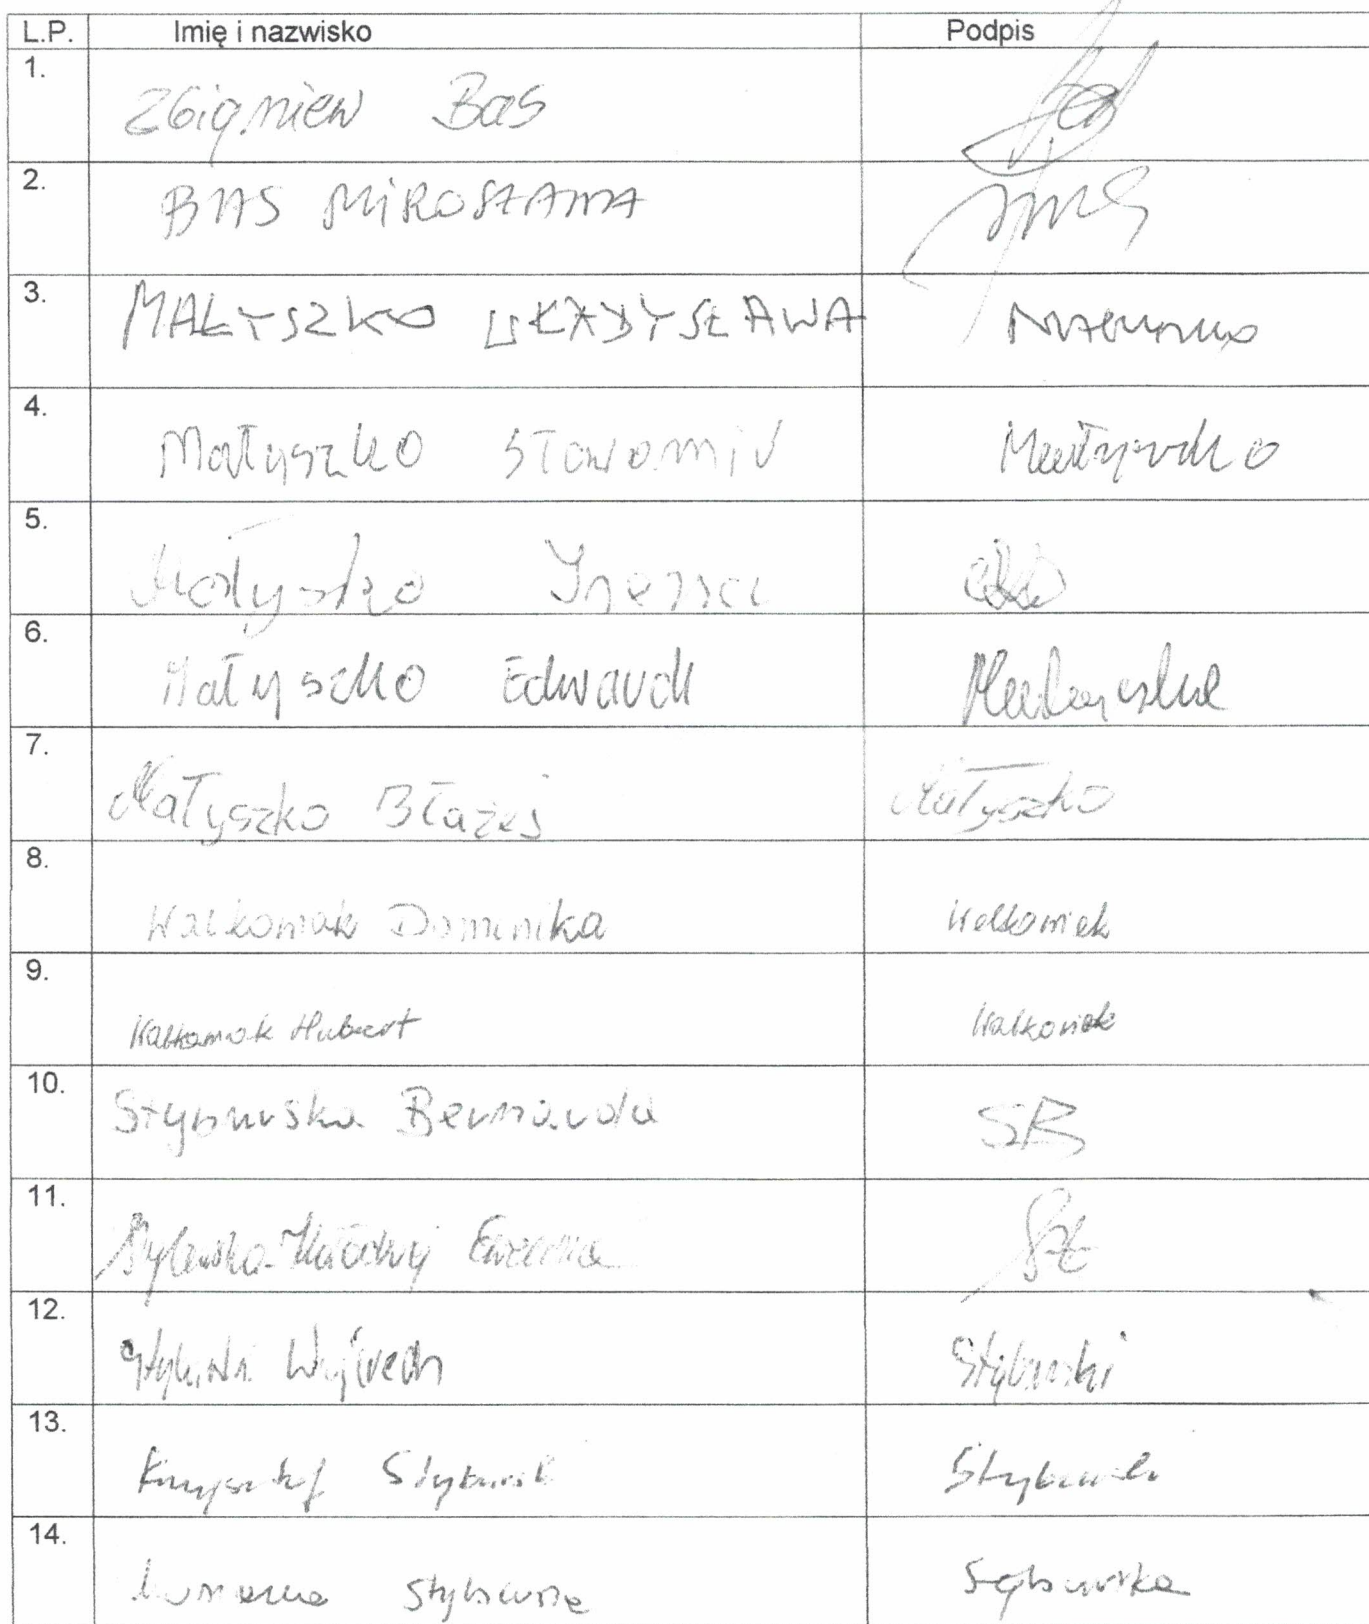 L.P. Imię i nazwisko Podpis
1. Zbigniew Bas
2. BAS MIROSŁAWA
3. MAŁYSZKO WŁADYSŁAWA
4. Małyszko Sławomir Małyszko
5. Małyszko
6. Małyszko Edward Małyszko
7. Małyszko Błażej Małyszko
8. Walkowiak Dominika Walkowiak
9. Walkowiak Hubert Walkowiak
10. Styburska Bernarda SB
11.
12. Styburski Wojciech Styburski
13. Krzysztof Styburski Styburski
14. Styburska Styburska